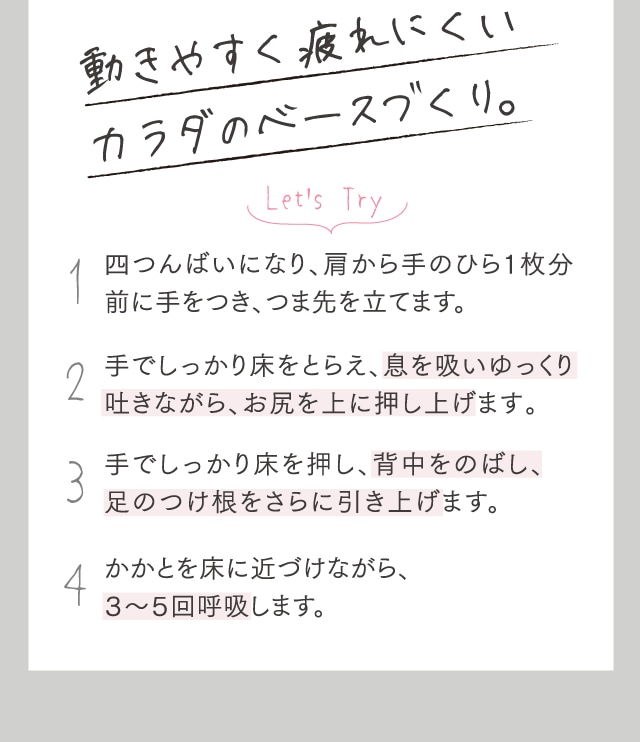 動きやすく疲れにくい
カラダのベースづくり。
Let's Try
1 四つんばいになり、肩から手のひら1枚分
前に手をつき、つま先を立てます。
2 手でしっかり床をとらえ、息を吸いゆっくり
吐きながら、お尻を上に押し上げます。
3 手でしっかり床を押し、背中をのばし、
足のつけ根をさらに引き上げます。
4 かかとを床に近づけながら、
3〜5回呼吸します。